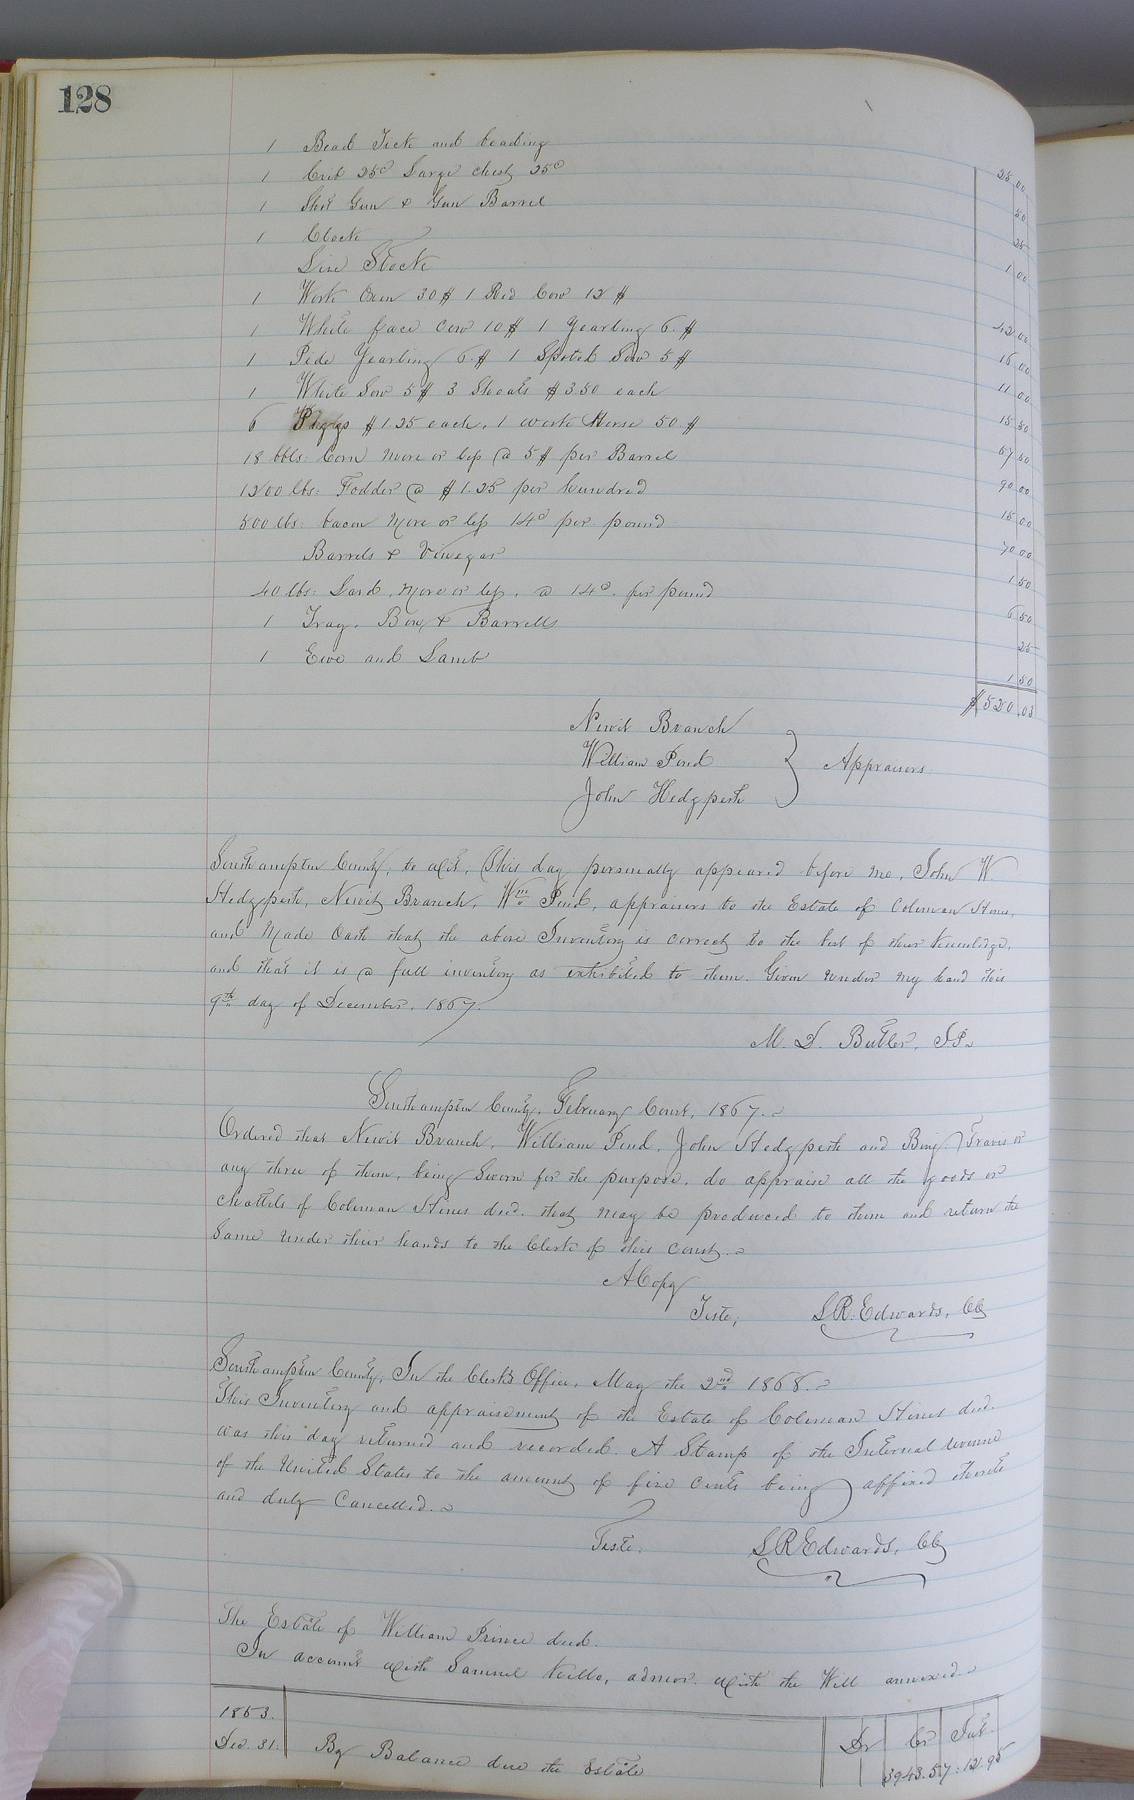 128
1 Bead Tick and beading 25.00
1 Crib 25c Large chest 25c 50
1 Shot Gun & Gun Barrel 25
1 Clock 1 00
Live Stock
1 Work Oxen 30$ 1 Red Cow 12$ 42.00
1 White face cow 10$ 1 Yearling 6.$ 16.00
1 Pede Yearling 6.$ 1 Spoted Sow 5$ 11 00
1 White Sow 5$ 3 Shoats $3.50 each 15 50
6 Piggs $1.25 each, 1 work Horse 50.$ 57 50
18 bbls. Corn more or less @ 5$ per Barrel 90 00
1200 lbs: Fodder @ $1.25 per hundred 15 00
500 lbs: bacon more or less 14c per pound 70 00
Barrels & Vinegar 1 50
40 lbs: Lard, more or less, @ 14c. per pound 5 50
1 Tray, Box, & Barrells 25
1 Ewe and Lamb 1 50
$520.03
Newit Branch
William Pond } Appraisers
John Hedgpeth
Southampton County, to wit, This day personally appeared before me, John W
Hedgpeth, Newit Branch, Wm Pond, appraisers to the Estate of Coleman Stines,
and Made Oath that the above Inventory is correct to the best of their knowledge,
and that it is a full inventory as exhibited to them. Given under my hand this
9th day of December, 1867.
M. D. Butler, J.P.
Southampton County, February Court, 1867.
Ordered that Newit Branch, William Pond, John Hedgpeth and Benj. Traver or
any three of them, being Sworn for the purpose, do appraise all the goods or
chattels of Coleman Stines decd. that may be produced to them and return the
Same under their hands to the Clerk of this court.
A Copy
Teste, L.R. Edwards, CC
Southampton County, In the Clerk's Office, May the 2nd 1868.
This Inventory and appraisement of the Estate of Coleman Stines decd.
was this day returned and recorded. A Stamp of the Internal revenue
of the United States to the amount of five cents being affixed thereto
and duly Cancelled.
Teste: L R Edwards, CC
The Estate of William Prince decd.
In account with Samuel Kello, admor. with the Will annexed.
1863. Dr Cr Int
Dec. 31. By Balance due the Estate 3943.57 : 12.95